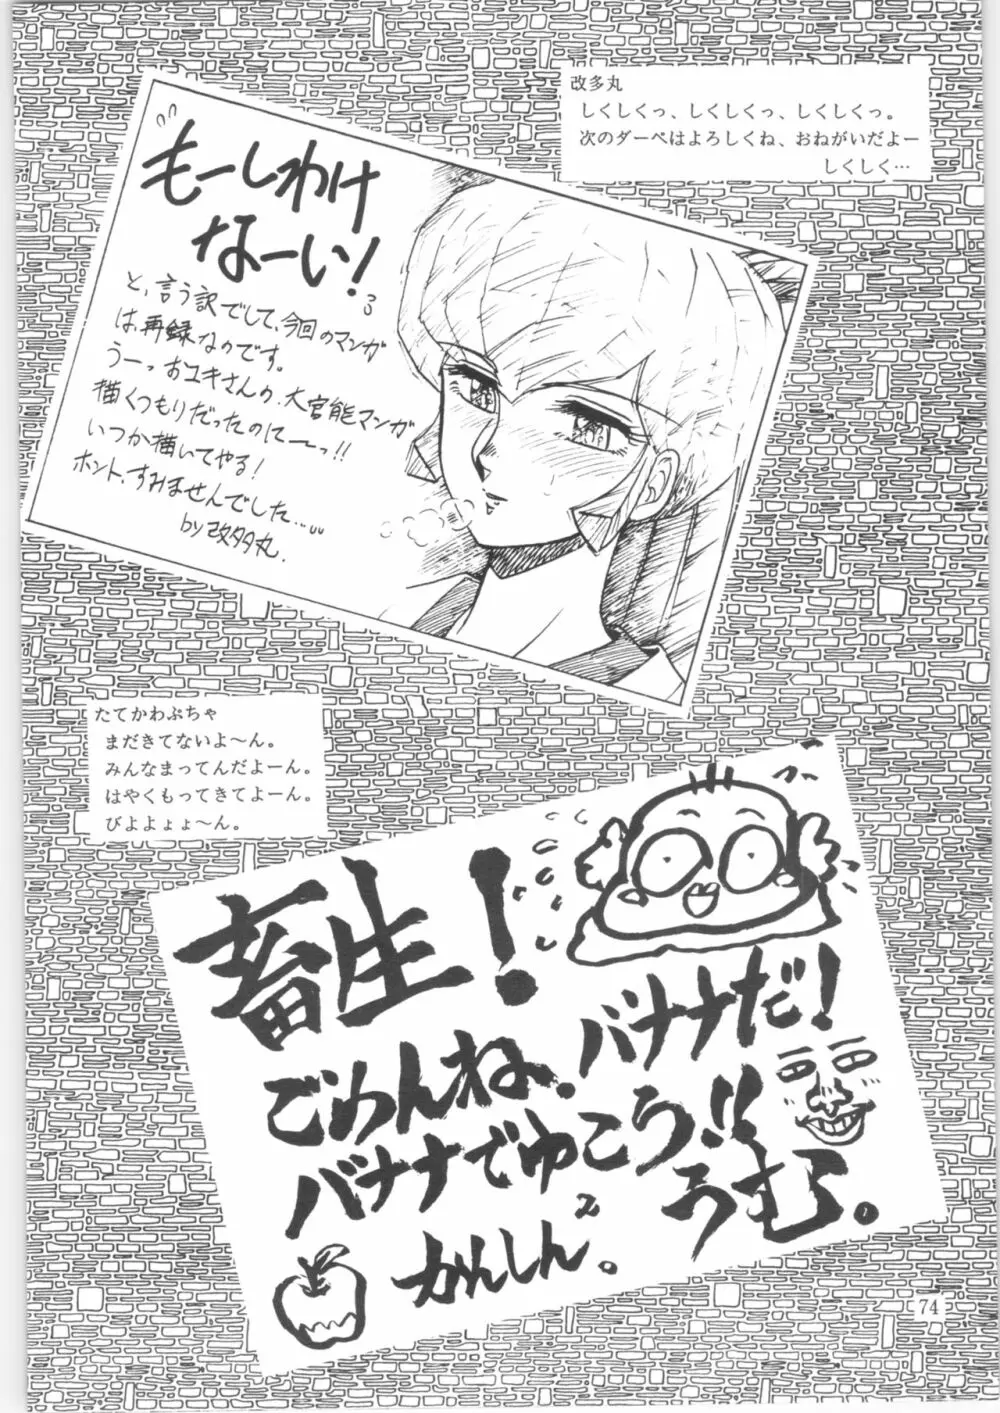 改多丸
しくしくっ、しくしくっ、しくしくっ。
次のダーペはよろしくね、おねがいだよー
しくしく…
もーしわけ
なーい!
と、言う訳でして、今回のマンガ
は、再録なのです。
うーっおユキさんの、大官能マンガ
描くつもりだったのにーっ!!
いつか描いてやる!
ホント、すみませんでした…
by改多丸.
たてかわぷちゃ
まだきてないよ〜ん。
みんなまってんだよーん。
はやくもってきてよーん。
びよよょょ〜ん。
畜生!
バナナだ!
ごめんね、
バナナでゆこう!!
うむ。
かんしん2。
74